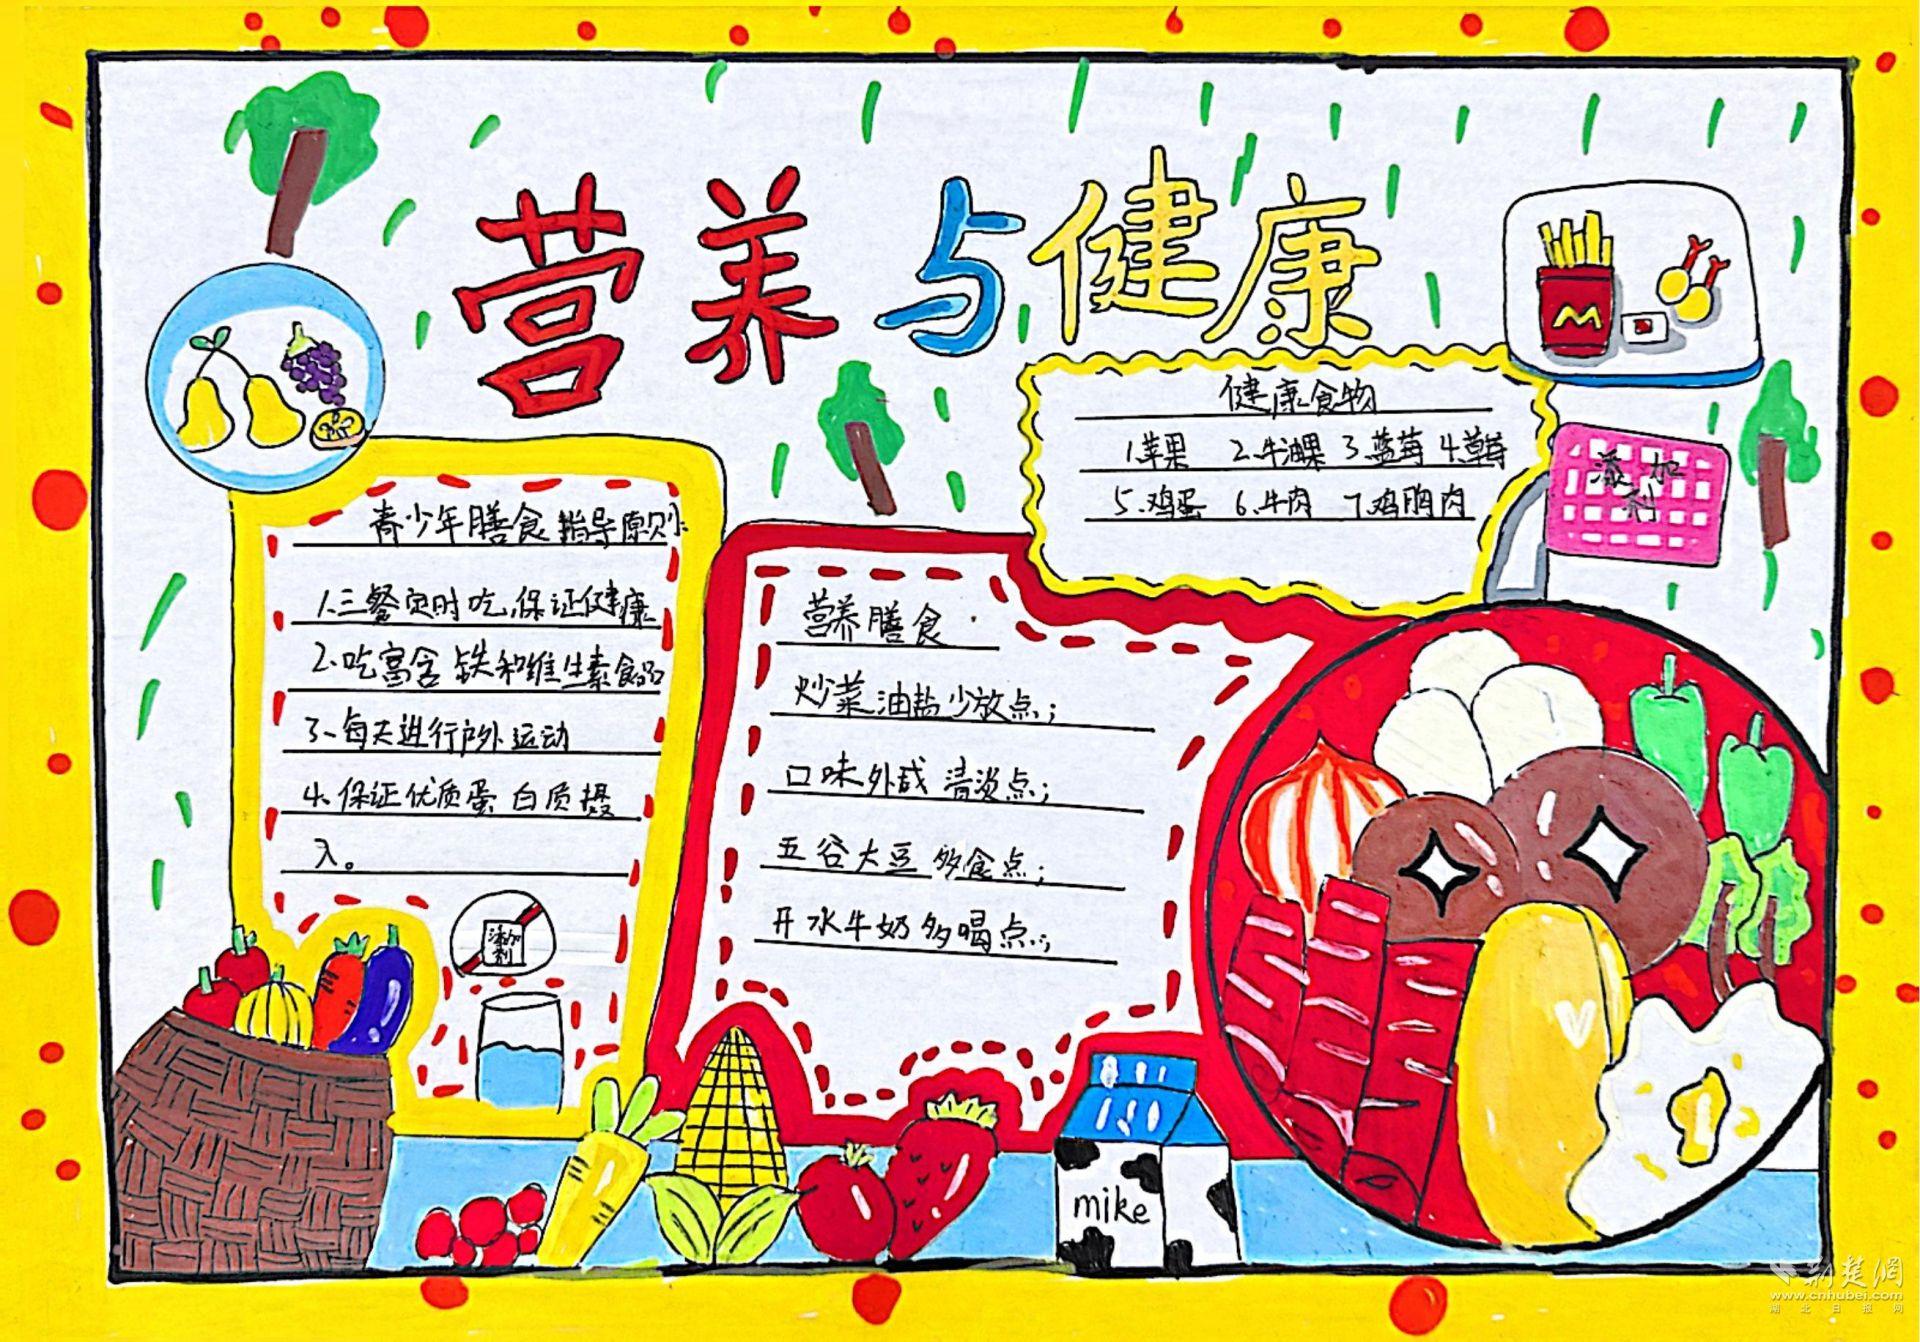 营养与健康
健康食物
1.苹果 2.牛油果 3.蓝莓 4.草莓
5.鸡蛋 6.牛肉 7.鸡胸肉
添加
剂
青少年膳食指导原则:
1.三餐定时吃,保证健康
2.吃富含铁和维生素食品
3、每天进行户外运动
4.保证优质蛋白质摄
入。
添加
剂
营养膳食
炒菜油盐少放点;
口味外咸清淡点;
五谷大豆多食点;
开水牛奶多喝点;
mike
荆楚網
www.cnhubei.com
湖北日报网